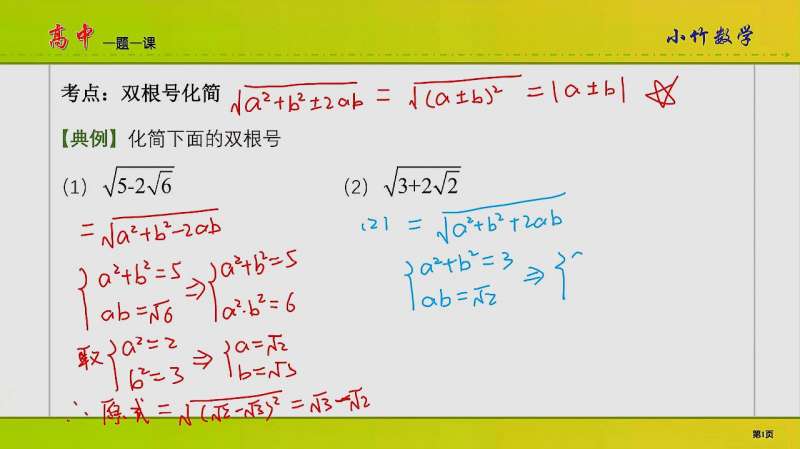 高中 一题一课
小竹数学
考点：双根号化简 √(a²+b²±2ab) = √((a±b)²) = |a±b| ☆
【典例】化简下面的双根号
（1）√(5-2√6)
（2）√(3+2√2)
= √(a²+b²-2ab)
{a²+b²=5 ⇒ {a²+b²=5
ab=√6 a²·b²=6
取{a²=2 ⇒ {a=√2
b²=3 b=√3
∴ 原式 = √((√2-√3)²) = √3-√2
(2) = √(a²+b²+2ab)
{a²+b²=3 ⇒ {
ab=√2
第1页